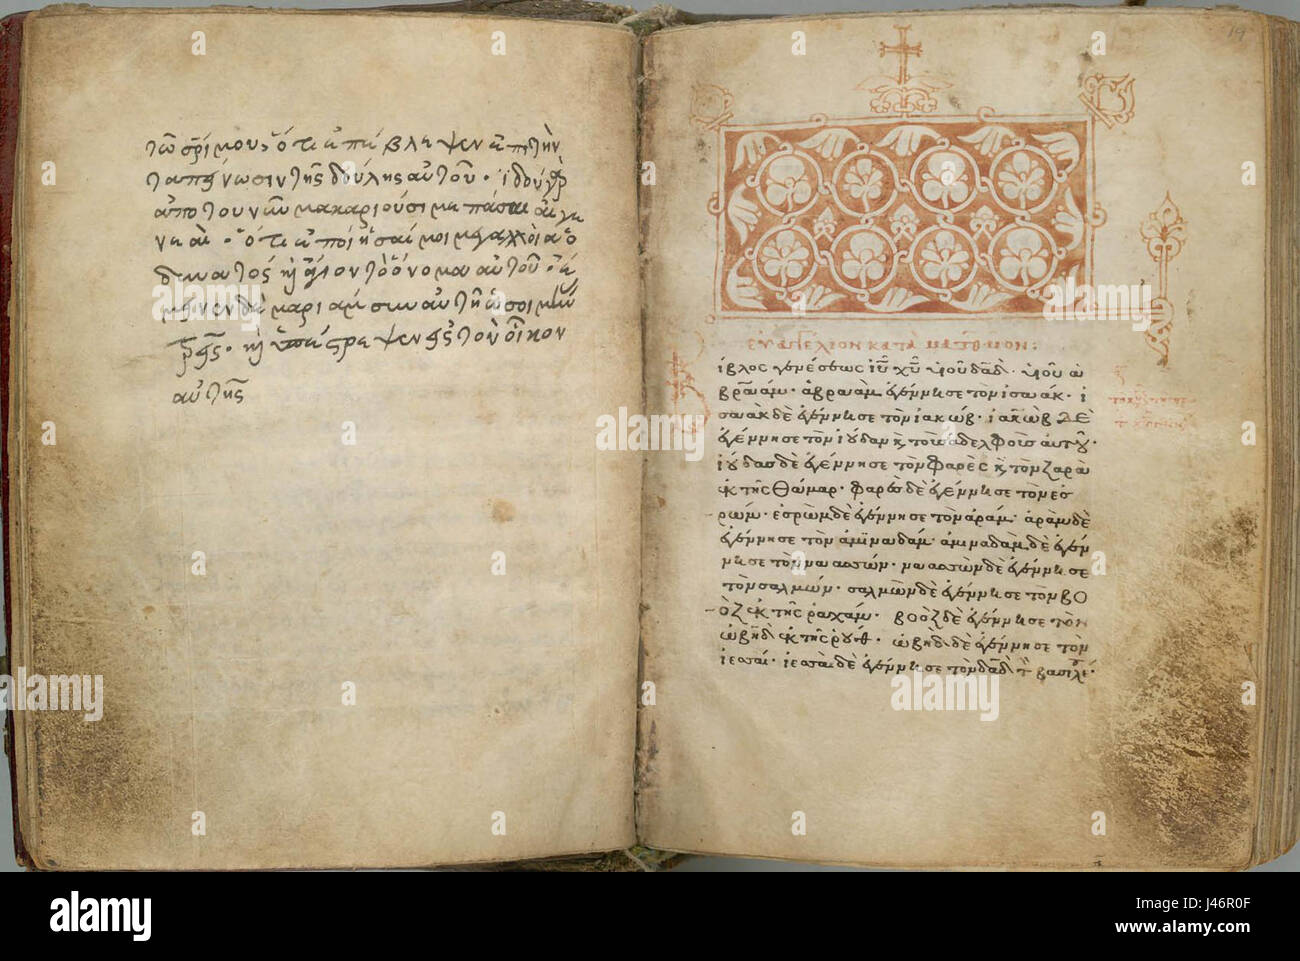 τῶ σρί μου· ὅτι ἐπέβλεψεν ἐπὶ τὴν
ταπείνωσιν τῆς δούλης αὐτοῦ· ἰδοὺ γὰρ
ἀπὸ τοῦ νῦν μακαριοῦσί με πᾶσαι αἱ γε
νεαί· ὅτι ἐποίησέ μοι μεγαλεῖα ὁ
δυνατός κὶ ἅγιον τὸ ὄνομα αὐτοῦ· ἔ
μεινεν δὲ μαριὰμ συν αὐτῆ ὡσεὶ μῆν
τρεῖς· κὶ ὑπέστρεψεν εἰς τὸν οἶκον
αὐτῆς
19
ΕΥΑΓΓΕΛΙΟΝ ΚΑΤΑ ΜΑΤΘΑΙΟΝ:
Β
ίβλος γενέσεως ἰῦ χῦ υἱοῦ δαδ· υἱοῦ α
βραάμ· ἀβραὰμ ἐγέννησε τὸν ἰσαάκ· ἰ
σαὰκ δὲ ἐγέννησε τὸν ἰακώβ· ἰακὼβ δὲ
ἐγέννησε τὸν ἰούδαν κ τοὺς ἀδελφοὺς αὐτοῦ·
ἰούδας δὲ ἐγέννησε τὸν φαρὲς κ τὸν ζαρὰ
ἐκ τῆς θάμαρ· φαρὲς δὲ ἐγέννησε τὸν ἐσ
ρώμ· ἐσρὼμ δὲ ἐγέννησε τὸν ἀράμ· ἀρὰμ δὲ
ἐγέννησε τὸν ἀμϊναδάμ· ἀμιναδὰμ δὲ ἐγέν
νησε τὸν ναασσών· ναασσὼν δὲ ἐγέννησε
τὸν σαλμών· σαλμὼν δὲ ἐγέννησε τὸν βο
ὸζ ἐκ τῆς ραχάμ· βοὸζ δὲ ἐγέννησε τὸν
ὠβὴδ ἐκ τῆς ρούθ· ὠβὴδ δὲ ἐγέννησε τὸν
ἰεσσαί· ἰεσσαὶ δὲ ἐγέννησε τὸν δαδ τ βασιλέ·
alamy
alamy
alamy
J46R0F
www.alamy.com